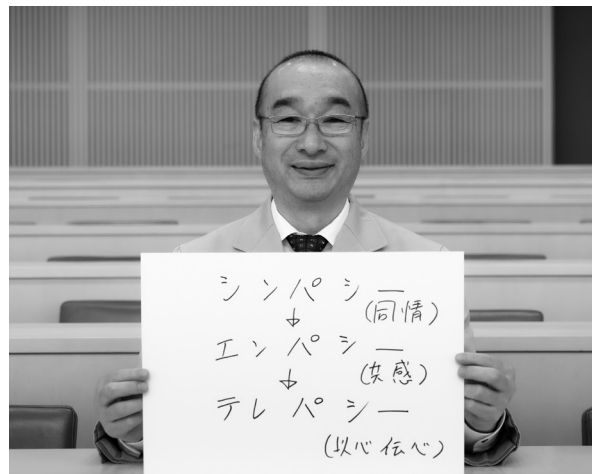 シンパシー
↓ (同情)
エンパシー
↓ (共感)
テレパシー
(以心伝心)